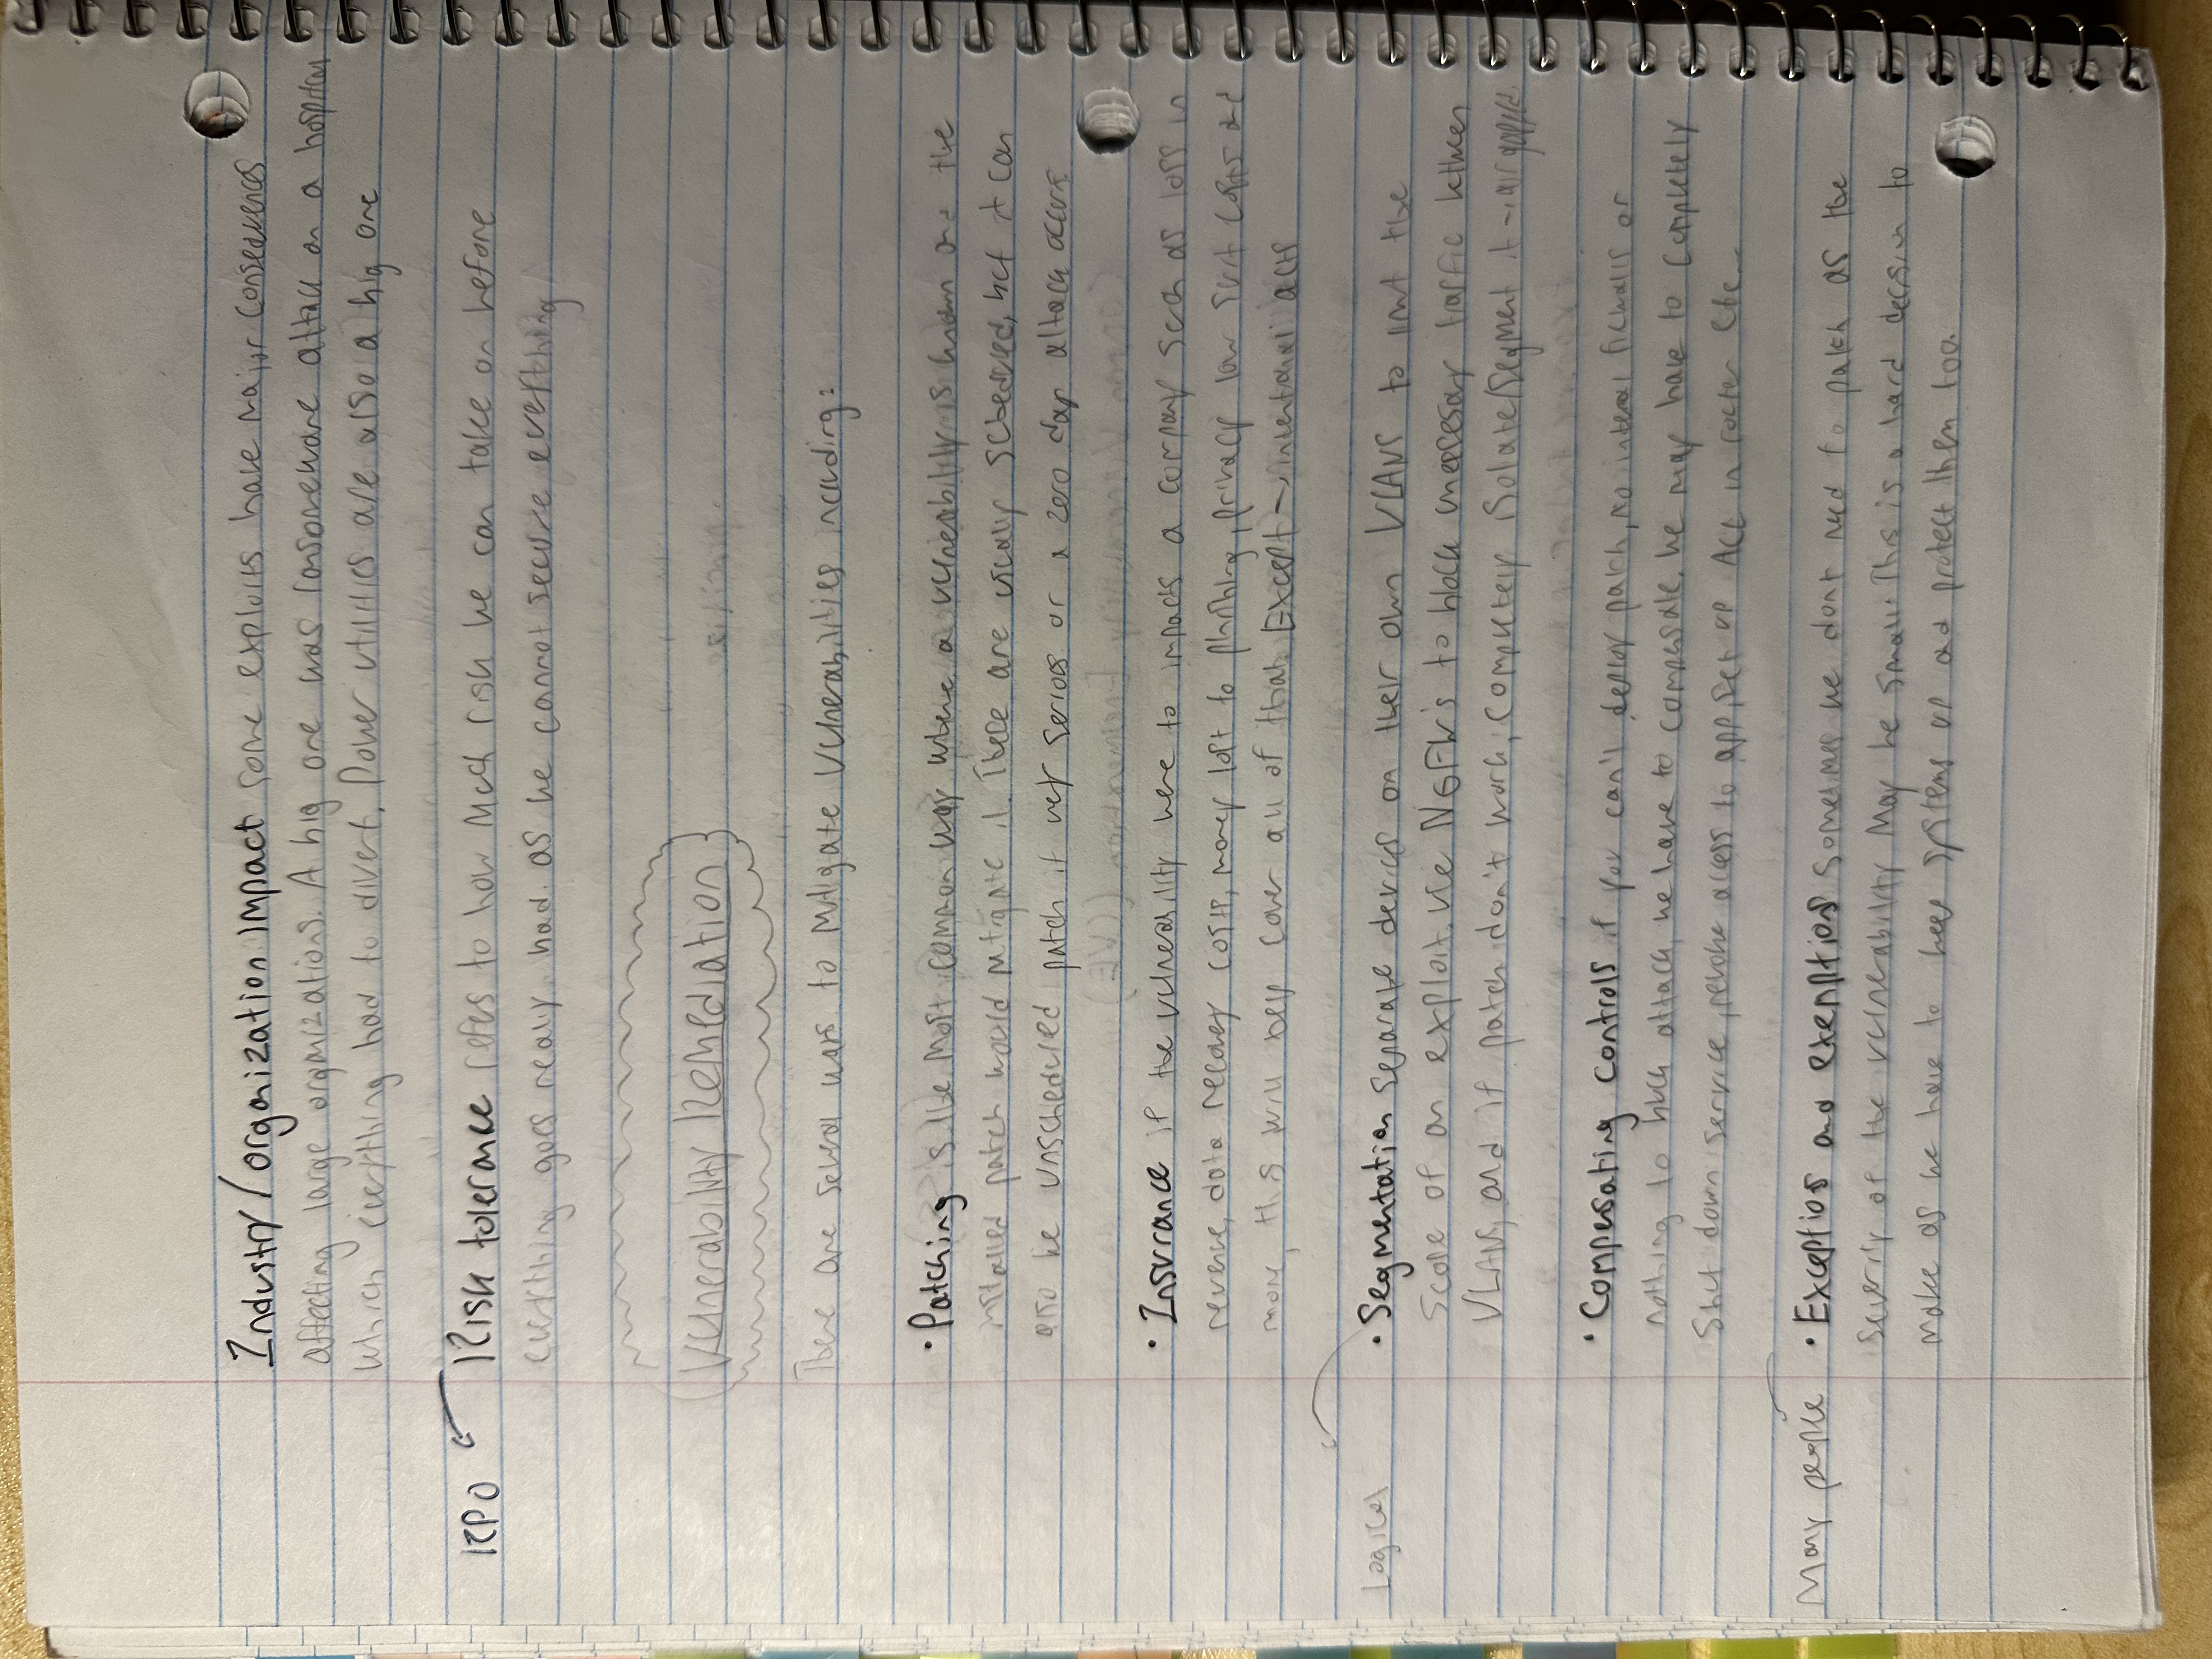 Industry/organization impact some exploits have major consequences
affecting large organizations. A big one was ransomeware attack on a hospital
which everything had to divert. Power utilities are also a big one
RPO
Risk tolerance refers to how much risk we can take on before
everything goes really bad. as we cannot secure everything
Vulnerability Remediation
There are several ways to mitigate vulnerabilities including:
• Patching is the most common way where a vulnerability is known and the
installed patch would mitigate it. These are usually scheduled, but it can
also be unscheduled patch if very serious or a zero day attack occurs.
• Insurance if the vulnerability were to impacts a company such as loss in
revenue, data recovery costs, money lost to phishing, privacy law suit costs and
more, this will help cover all of that. Except → intentional acts
Logical
• Segmentation separate devices on their own VLANS to limit the
scope of an exploit. Use NGFW's to block unnecesary traffic between
VLANs, and if patch don't work, completely isolate/segment it → air gapped
• Compensating controls if you can't deploy patch, no internal firewalls or
nothing to block attack, we have to compensate. We may have to completely
shut down service, revoke access to app, set up ACL in router etc...
Many people
• Exceptions and exemptions sometimes we dont need to patch as the
severity of the vulnerability may be small. This is a hard decision to
make as we have to keep systems up and protect them too.